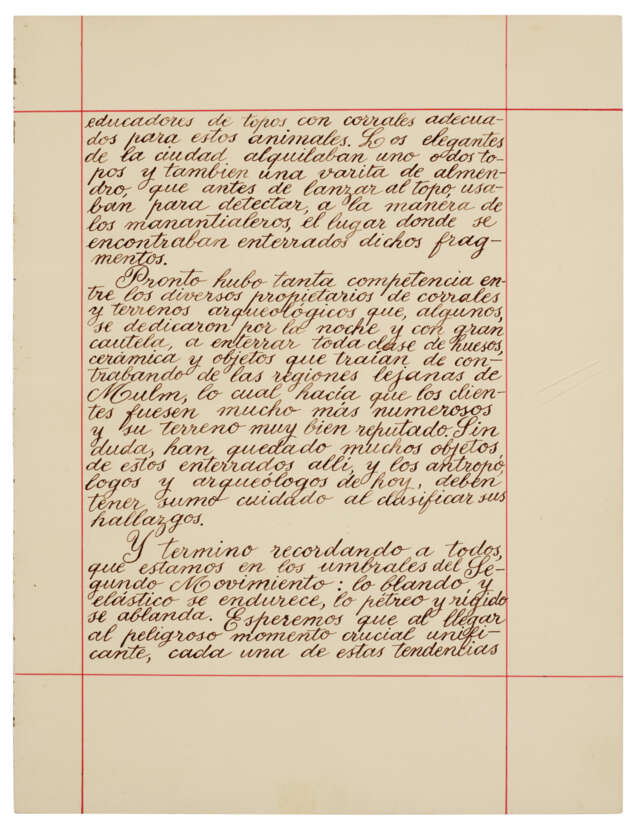 educadores de topos con corrales adecua-
dos para estos animales. Los elegantes
de la ciudad alquilaban uno o dos to-
pos y tambien una varita de almen-
dro, que antes de lanzar al topo, usa-
ban para detectar, a la manera de
los manantialeros, el lugar donde se
encontraban enterrados dichos frag-
mentos.
Pronto hubo tanta competencia en-
tre los diversos propietarios de corrales
y terrenos arqueológicos que, algunos,
se dedicaron por la noche y con gran
cautela, a enterrar toda clase de huesos,
cerámica y objetos que traían de con-
trabando de las regiones lejanas de
Mulm, lo cual hacía que los clien-
tes fuesen mucho más numerosos
y su terreno muy bien reputado. Sin
duda, han quedado muchos objetos,
de estos enterrados allí, y los antropó,
logos y arqueólogos de hoy, deben
tener sumo cuidado al clasificar sus
hallazgos.
Y termino recordando a todos,
que estamos en los umbrales del Se-
gundo Movimiento: lo blando y
elástico se endurece, lo pétreo y rígido
se ablanda. Esperemos que al llegar
al peligroso momento crucial unifi-
cante, cada una de estas tendencias